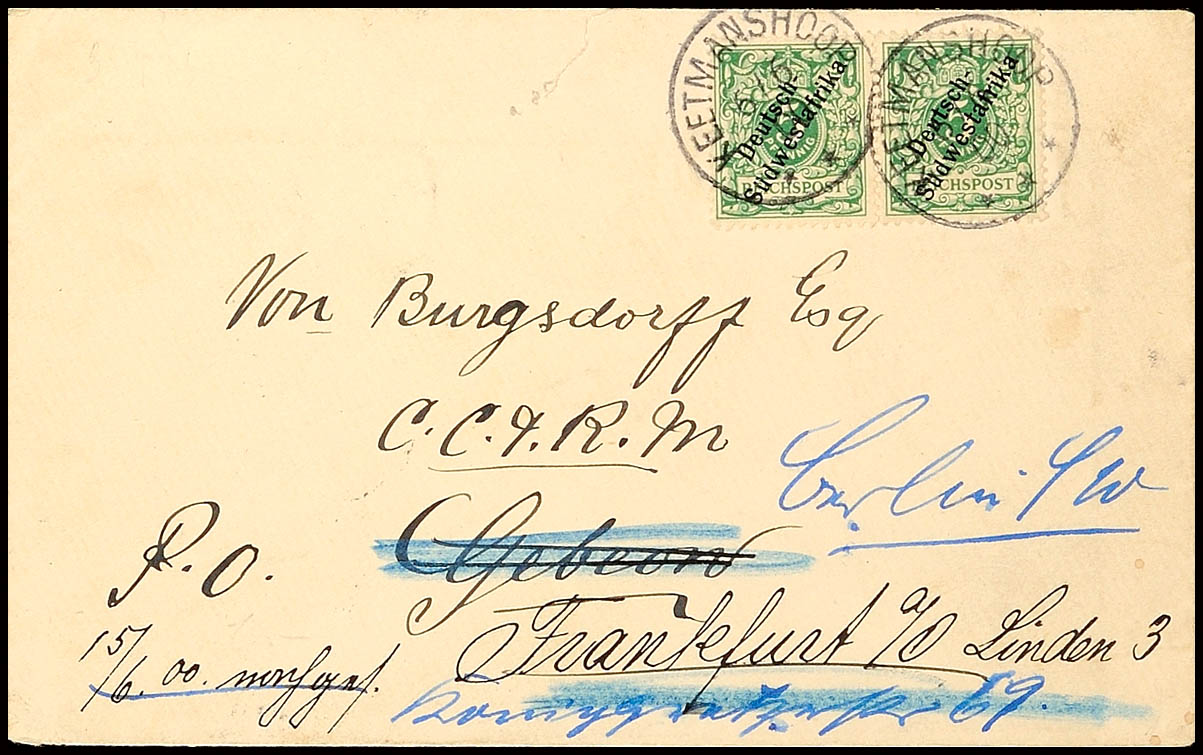 KEETMANSHOOP
KEETMANSHOOP
Deutsch-
Südwestafrika
REICHSPOST
Deutsch-
Südwestafrika
REICHSPOST
Von Burgsdorff Esq
C. C. & R. M
Berlin SW
P. O. Gebeon
Frankfurt a/O Linden 3
15/6. 00. nachges.
Königgrätzerstr 69.